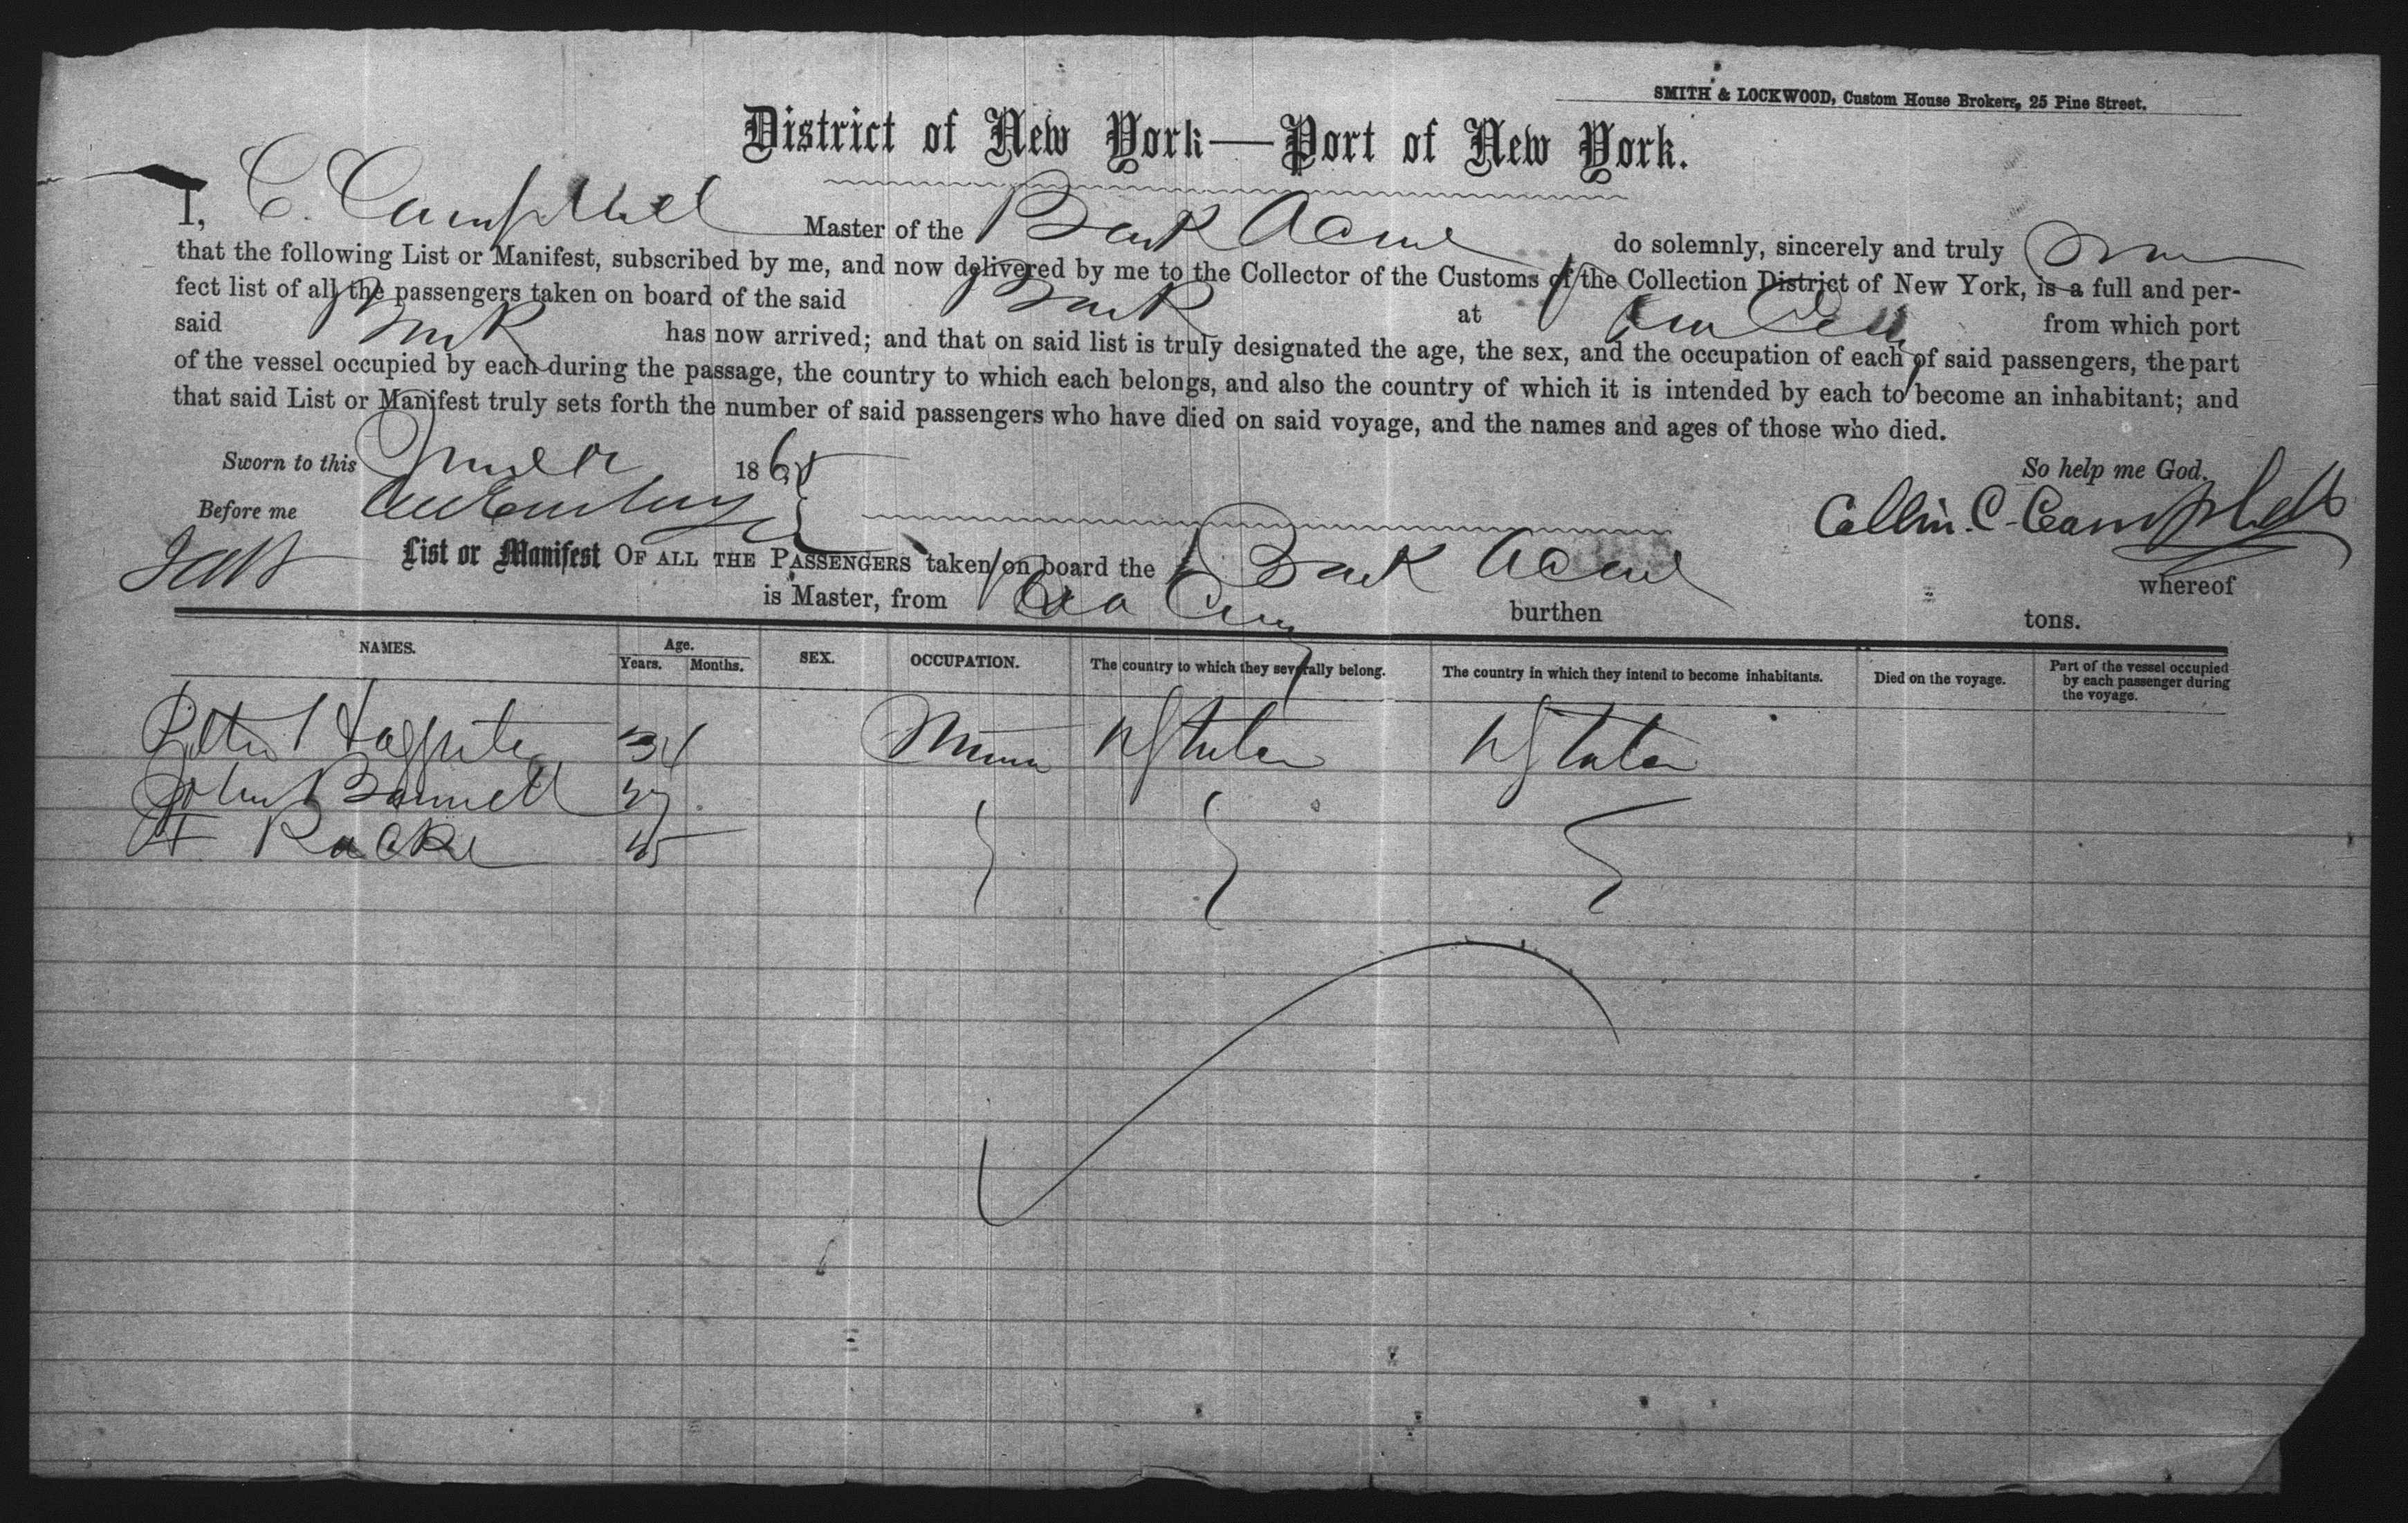 SMITH & LOCKWOOD, Custom House Brokers, 25 Pine Street.
District of New York—Port of New York.
I, C. Campbell Master of the Bark Acme do solemnly, sincerely and truly
that the following List or Manifest, subscribed by me, and now delivered by me to the Collector of the Customs of the Collection District of New York, is a full and per-
fect list of all the passengers taken on board of the said Bark at from which port
said Bark has now arrived; and that on said list is truly designated the age, the sex, and the occupation of each of said passengers, the part
of the vessel occupied by each during the passage, the country to which each belongs, and also the country of which it is intended by each to become an inhabitant; and
that said List or Manifest truly sets forth the number of said passengers who have died on said voyage, and the names and ages of those who died.
Sworn to this 1865 So help me God.
Before me Collin. C. Campbell
List or Manifest OF ALL THE PASSENGERS taken on board the Bark Acme whereof
is Master, from burthen tons.
NAMES. Age. SEX. OCCUPATION. The country to which they severally belong. The country in which they intend to become inhabitants. Died on the voyage. Part of the vessel occupied by each passenger during the voyage.
Years. Months.
34 U States U States
John 27
Racke 45